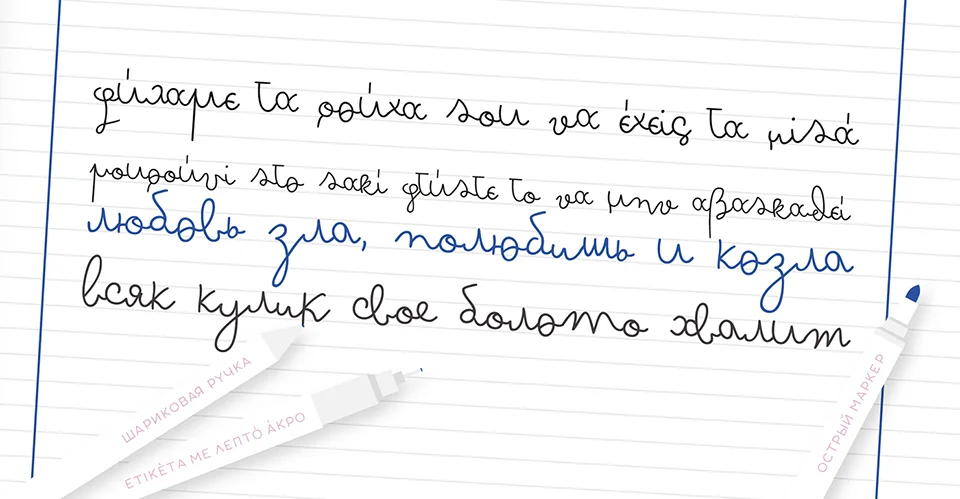 φύλαμε τα ρούχα σου να έχεις τα μισά
μουρούνι στο σακί φτύστε το να μην αβασκαθεί
любовь зла, полюбишь и козла
всяк кулик свое болото хвалит
ШАРИКОВАЯ РУЧКА
ΕΤΙΚÈΤΑ ΜΕ ΛΕΠΤÓ ÁΚΡΟ
ОСТРЫЙ МАРКЕР